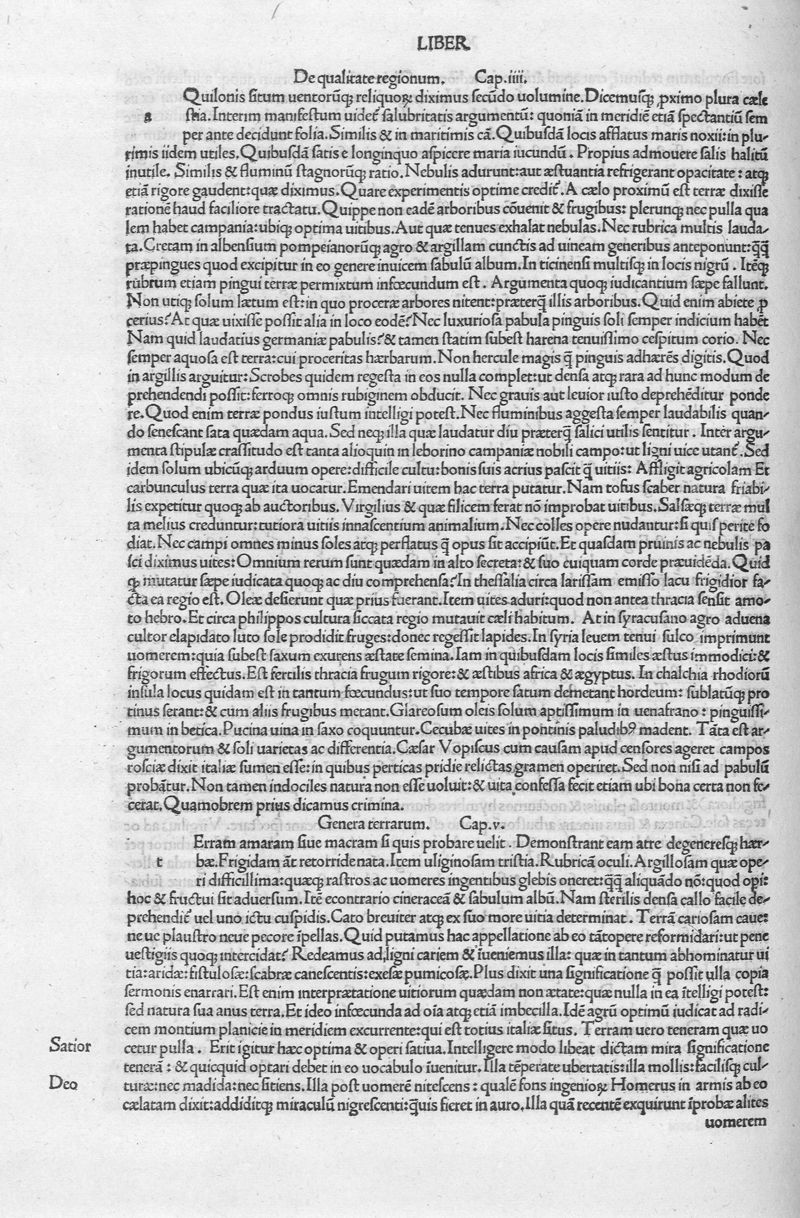 LIBER
De qualitate regionum. Cap.iiii.
Quilonis situm uentorūq; reliquoꝝ diximus secūdo uolumine. Dicemusq; ꝓximo plura cæle
a stia. Interim manifestum uidet᷑ salubritatis argumentū: quoniā in meridiē etiā spectantiū sem
per ante decidunt folia. Similis & in maritimis cā. Quibusdā locis afflatus maris noxii: in plu-
rimis iidem utiles. Quibusdā satis e longinquo aspicere maria iucundū. Propius admouere salis halitū
inutile. Similis & fluminū stagnorūq; ratio. Nebulis adurunt: aut æstuantia refrigerant opacitate: atq;
etiā rigore gaudent: quæ diximus. Quare experimentis optime credit᷑. A cælo proximū est terræ dixisse
rationē haud faciliore tractatu. Quippe non eadē arboribus cōuenit & frugibus: plerunq; nec pulla qua
lem habet campania: ubiq; optima uitibus. Aut quæ tenues exhalat nebulas. Nec rubrica multis lauda-
ta. Cretam in albensium pompeianorūq; agro & argillam cunctis ad uineam generibus anteponunt: q̄q̄
præpingues quod excipitur in eo genere inuicem sabulū album. In ticinensi multisq; in locis nigrū. Itēq;
rubrum etiam pingui terræ permixtum infœcundum est. Argumenta quoq; iudicantium sæpe fallunt.
Non utiq; solum lætum est: in quo proceræ arbores nitent: præterq̄ illis arboribus. Quid enim abiete ꝓ
cerius? At quæ uixisse possit alia in loco eodē? Nec luxuriosa pabula pinguis soli semper indicium habēt
Nam quid laudatius germaniæ pabulis? & tamen statim subest harena tenuissimo cespitum corio. Nec
semper aquosa est terra: cui proceritas hærbarum. Non hercule magis q̄ pinguis adhærēs digitis. Quod
in argillis arguitur: Scrobes quidem regesta in eos nulla complet: ut densa atq; rara ad hunc modum de
prehendendi possit: ferroq; omnis rubiginem obducit. Nec grauis aut leuior iusto deprehēditur ponde
re. Quod enim terræ pondus iustum intelligi potest. Nec fluminibus aggesta semper laudabilis quan-
do senescant sata quædam aqua. Sed neq; illa quæ laudatur diu præterq̄ salici utilis sentitur. Inter argu-
menta stipulæ crassitudo est tanta alioquin in leborino campaniæ nobili campo: ut ligni uice utant᷑. Sed
idem solum ubicūq; arduum opere: difficile cultu: bonis suis acrius pascit q̄ uitiis: Affligit agricolam Et
carbunculus terra quæ ita uocatur. Emendari uitem hac terra putatur. Nam tofus scaber natura friabi-
lis expetitur quoq; ab auctoribus. Virgilius & quæ filicem ferat nō improbat uitibus. Salsæq; terræ mul
ta melius creduntur: tutiora uitiis innascentium animalium. Nec colles opere nudantur: si quis perite fo
diat. Nec campi omnes minus soles atq; perflatus q̄ opus sit accipiūt. Et quasdam pruinis ac nebulis pa
sci diximus uites: Omnium rerum sunt quædam in alto secreta: & suo cuiquam corde præuidēda. Quid
q; mutatur sæpe iudicata quoq; ac diu comprehensa? In thessalia circa larissam emisso lacu frigidior fa-
cta ea regio est. Oleæ desierunt quæ prius fuerant. Item uites aduri: quod non antea thracia sensit amo-
to hebro. Et circa philippos cultura siccata regio mutauit cæli habitum. At in syracusano agro aduena
cultor elapidato luto sole prodidit fruges: donec regessit lapides. In syria leuem tenui sulco imprimunt
uomerem: quia subest saxum exurens æstate semina. Iam in quibusdam locis similes æstus immodici: &
frigorum effectus. Est fertilis thracia frugum rigore: & æstibus africa & ægyptus. In chalchia rhodiorū
insula locus quidam est in tantum fœcundus: ut suo tempore satum demetant hordeum: sublatūq; pro
tinus serant: & cum aliis frugibus metant. Glareosum oleis solum aptissimum in uenafrano: pinguissi-
mum in betica. Pucina uina in saxo coquuntur. Cecubæ uites in pontinis paludibꝰ madent. Tāta est ar-
gumentorum & soli uarietas ac differentia. Cæsar Vopiscus cum causam apud censores ageret campos
rosciæ dixit italiæ sumen esse: in quibus perticas pridie relictas gramen operiret. Sed non nisi ad pabulū
probātur. Non tamen indociles natura non esse uoluit: & uita confessa fecit etiam ubi bona certa non fe-
cerat. Quamobrem prius dicamus crimina.
Genera terrarum. Cap.v.
Erram amaram siue macram si quis probare uelit. Demonstrant eam atre degeneresq; hær-
t bæ. Frigidam āt retorride nata. Item uliginosam tristia. Rubricā oculi. Argillosam quæ ope-
ri difficillima: quæq; rastros ac uomeres ingentibus glebis oneret: q̄q̄ aliquādo nō: quod opi:
hoc & fructui sit aduersum. Itē econtrario cineraceā & sabulum albū. Nam sterilis densa callo facile de-
prehendit᷑ uel uno ictu cuspidis. Cato breuiter atq; ex suo more uitia determinat. Terrā cariosam caue:
ne ue plaustro neue pecore īpellas. Quid putamus hac appellatione ab eo tātopere reformidari: ut pene
uestigiis quoq; intercidat᷑? Redeamus ad ligni cariem & iueniemus illa: quæ in tantum abhominatur ui
tia: aridæ: fistulosæ: scabræ canescentis: exesæ pumicosæ. Plus dixit una significatione q̄ possit ulla copia
sermonis enarrari. Est enim interprætatione uitiorum quædam non ætate: quæ nulla in ea ītelligi potest:
sed natura sua anus terra. Et ideo infœcunda ad oīa atq; etiā imbecilla. Idē agrū optimū iudicat ad radi-
cem montium planicie in meridiem excurrente: qui est totius italiæ situs. Terram uero teneram quæ uo
Satior cetur pulla. Erit igitur hæc optima & operi satiua. Intelligere modo libeat dictam mira significatione
tenerā: & quicquid optari debet in eo uocabulo īuenitur. Illa tēperate ubertatis: illa mollis: facilisq; cul-
Deo turæ: nec madida: nec sitiens. Illa post uomerē nitescens: qualē fons ingenioꝝ Homerus in armis ab eo
cælatam dixit: addiditq; miraculū nigrescenti: q̄uis fieret in auro. Illa quā recentē exquirunt īprobæ alites
uomerem